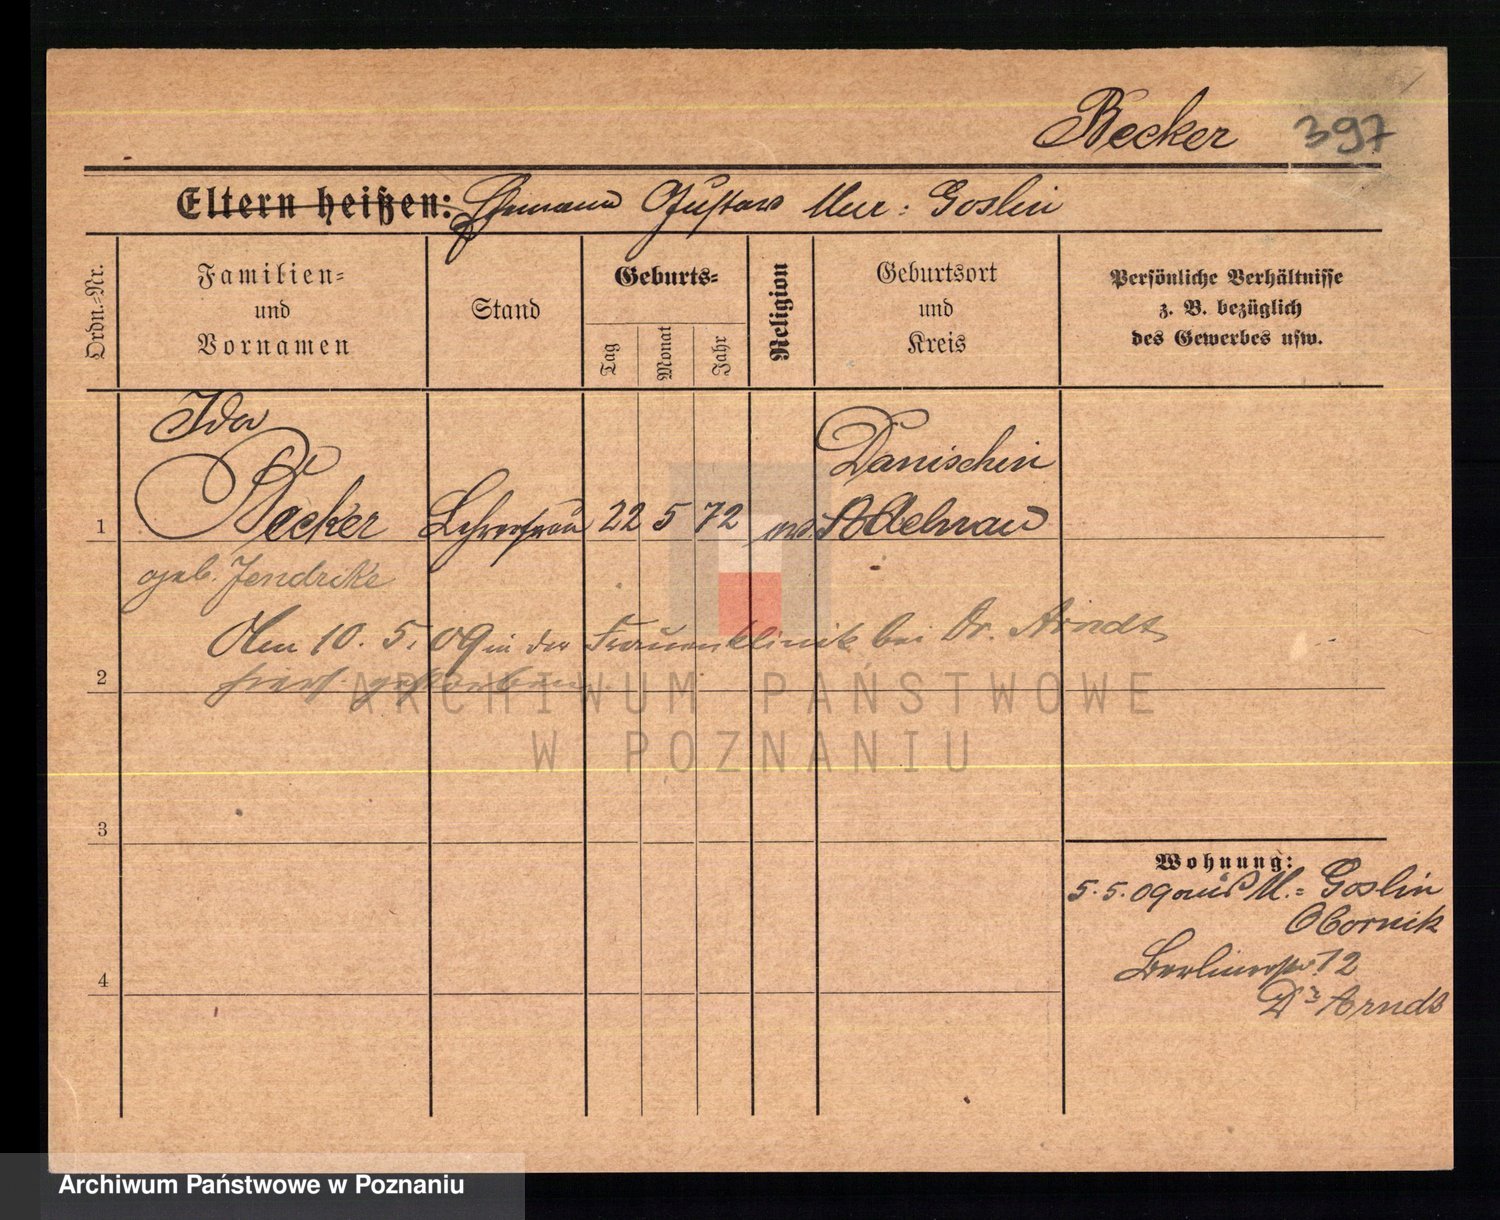 Becker 397
Eltern heißen: Ehemann Gustav Mur: Goslin
Ordn.-Nr.
Familien-
und
Vornamen
Stand
Geburts-
Tag
Monat
Jahr
Religion
Geburtsort
und
Kreis
Persönliche Verhältnisse
z. B. bezüglich
des Gewerbes usw.
Ida
1 Becker Lehrerfrau 22 5 72 Danischin
Adelnau
geb. Jendrike
Am 10. 5. 09 in der Frauenklinik bei Dr. Arndt
2 hiers. gestorben.
ARCHIWUM PAŃSTWOWE
W POZNANIU
3
4
Wohnung:
5. 5. 09 aus M.= Goslin
Obornik
Berlinerstr 12
Dr Arndt
Archiwum Państwowe w Poznaniu